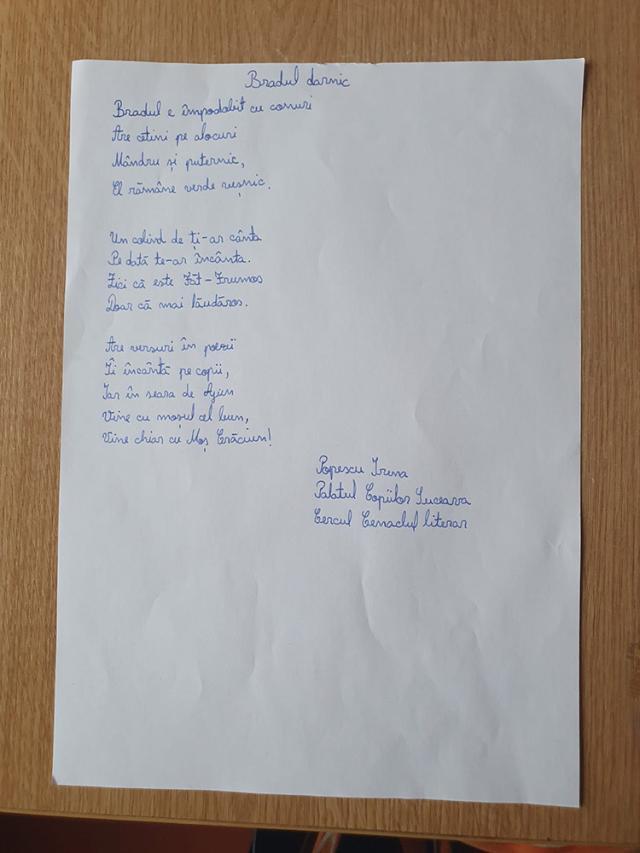 Bradul darnic
Bradul e împodobit cu conuri
Are cetini pe alocuri
Mândru și puternic,
El rămâne verde veșnic.
Un colind de ți-ar cânta
Pe dată te-ar încânta.
Zici că este Făt-Frumos
Doar că mai lăudăros.
Are versuri în poezii
Îi încântă pe copii,
Iar în seara de Ajun
Vine cu moșul cel bun,
Vine chiar cu Moș Crăciun!
Popescu Irina
Palatul Copiilor Suceava
Cercul Cenaclul literar